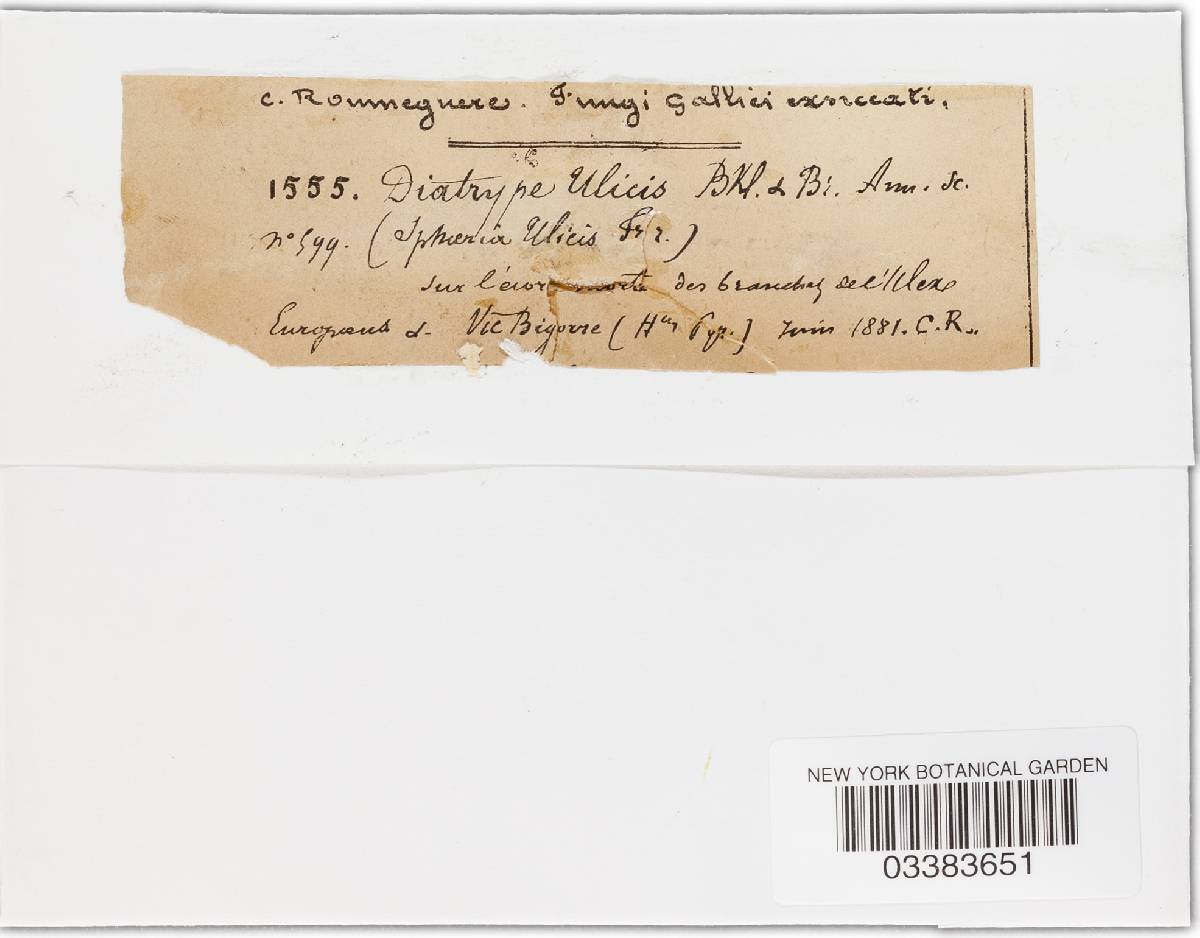 C. Roumeguere. Fungi Gallici exsiccati.
1555. Diatrype Ulicis Bkl. & Br. Ann. Sc.
n° 599. (Sphœria Ulicis Fr.)
sur l'écorce morte des branches de l'Ulex
Europœus à Vic Bigorre (Htes Pyr.) Juin 1881. C. R.
NEW YORK BOTANICAL GARDEN
03383651